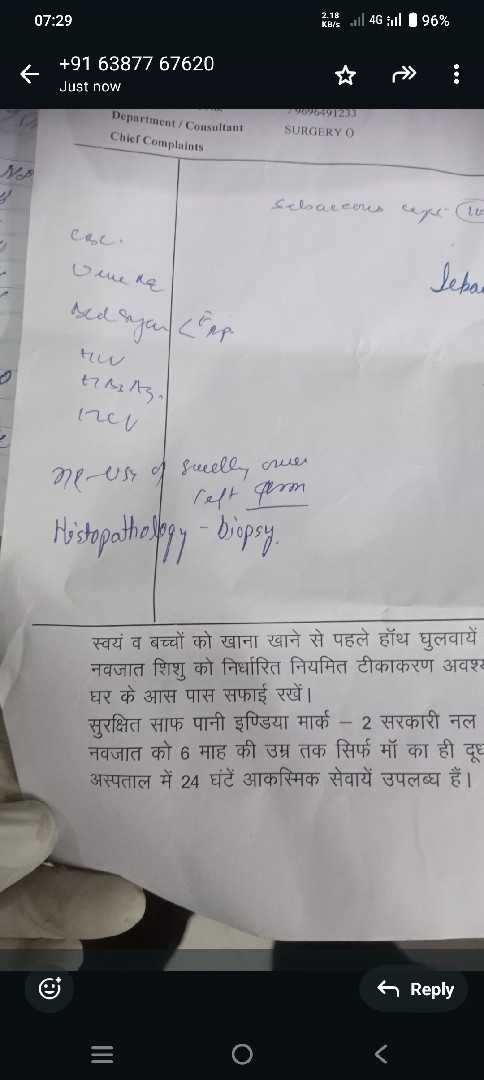 07:29
2.18 KB/s 4G 96%
+91 63877 67620
Just now
9696491233
Department / Consultant SURGERY O
Chief Complaints
Sebaceous
CBC.
Urine
Bed Sugar
HIV
HBsAg.
HCV
of swelly over
left
Histopathology - biopsy.
स्वयं व बच्चों को खाना खाने से पहले हॉथ घुलवायें
नवजात शिशु को निर्धारित नियमित टीकाकरण अवश्य
घर के आस पास सफाई रखें।
सुरक्षित साफ पानी इण्डिया मार्क – 2 सरकारी नल
नवजात को 6 माह की उम्र तक सिर्फ मॉ का ही दूध
अस्पताल में 24 घंटें आकस्मिक सेवायें उपलब्ध हैं।
Reply